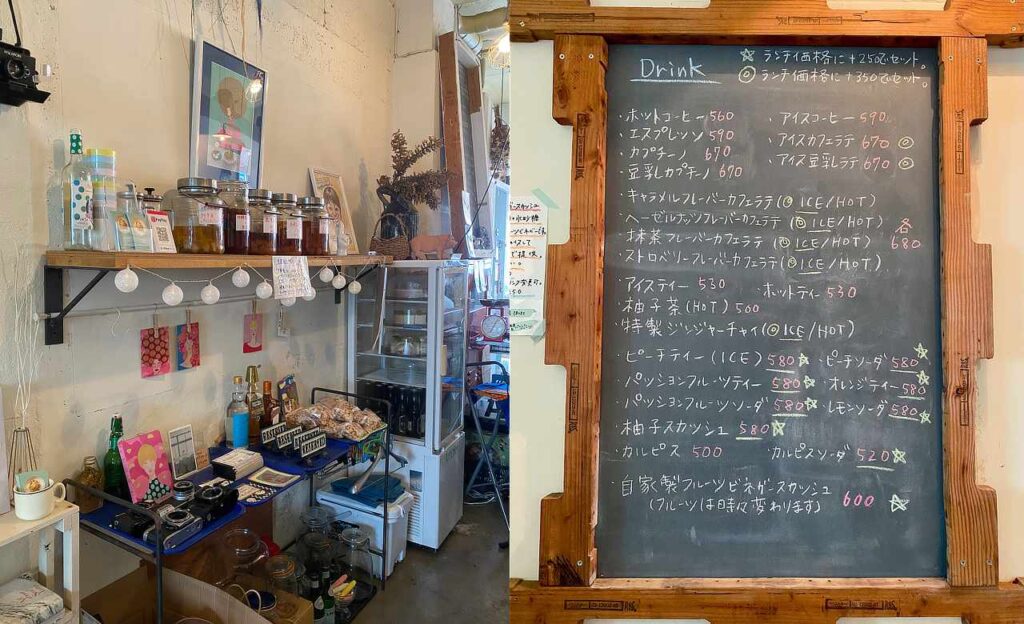 Drink
☆ ランチ価格に+250でセット。
◎ ランチ価格に+350でセット。
・ホットコーヒー 560 ・アイスコーヒー 590
・エスプレッソ 590 ・アイスカフェラテ 670 ◎
・カプチーノ 670 ・アイス豆乳ラテ 670 ◎
・豆乳カプチーノ 670
・キャラメルフレーバーカフェラテ(◎ ICE/HOT)
・ヘーゼルナッツフレーバーカフェラテ(◎ ICE/HOT)
・抹茶フレーバーカフェラテ(◎ ICE/HOT)
・ストロベリーフレーバーカフェラテ(◎ ICE/HOT)
各680
・アイスティー 530 ・ホットティー 530
・柚子茶(HOT) 500
・特製ジンジャーチャイ(◎ ICE/HOT)
・ピーチティー(ICE) 580☆ ・ピーチソーダ 580☆
・パッションフルーツティー 580☆ ・オレンジティー 580☆
・パッションフルーツソーダ 580☆ ・レモンソーダ 580☆
・柚子スカッシュ 580☆
・カルピス 500 ・カルピスソーダ 520☆
・自家製フルーツビネガースカッシュ
(フルーツは時々変わります) 600 ☆